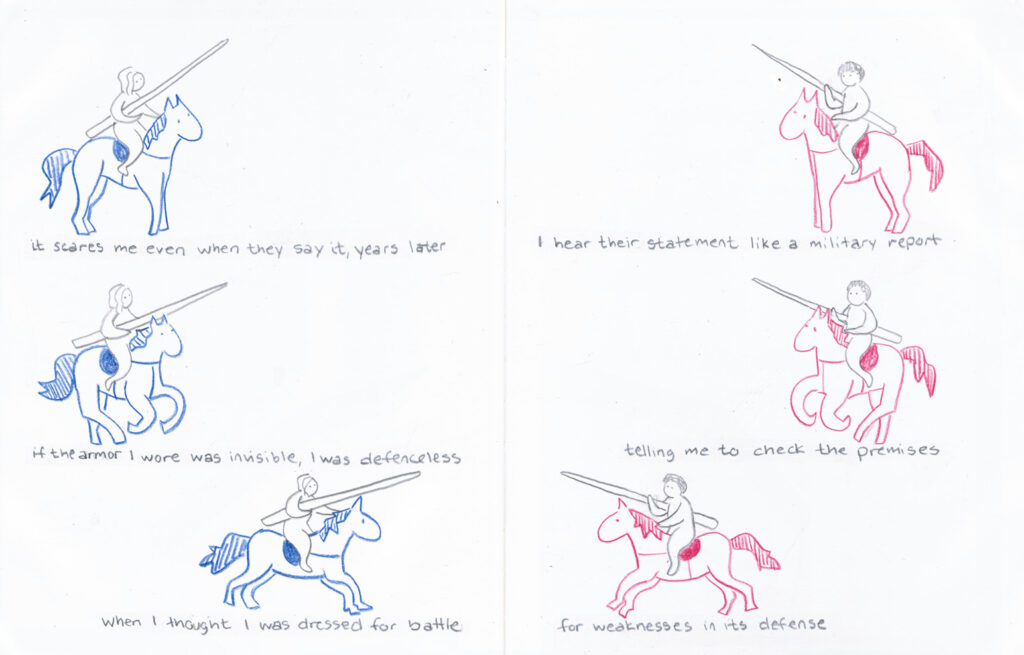 it scares me even when they say it, years later
if the armor I wore was invisible, I was defenceless
when I thought I was dressed for battle
I hear their statement like a military report
telling me to check the premises
for weaknesses in its defense